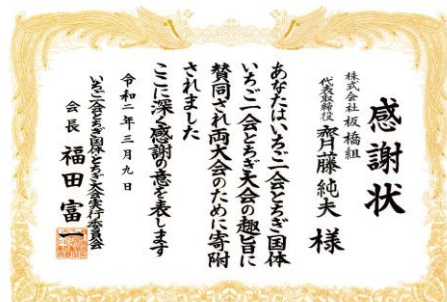 感謝状
株式会社 板橋組
代表取締役 齋藤純夫 様
あなたはいちご一会とちぎ国体
いちご一会とちぎ大会の趣旨に
賛同され両大会のために寄附
されました
ここに深く感謝の意を表します
令和二年三月九日
いちご一会とちぎ国体・とちぎ大会実行委員会
会長 福田富一